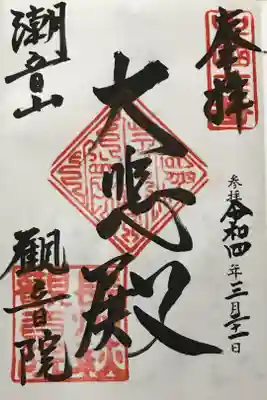 奉拝
参拝令和四年三月二十一日
大悲殿
潮音山
觀音院